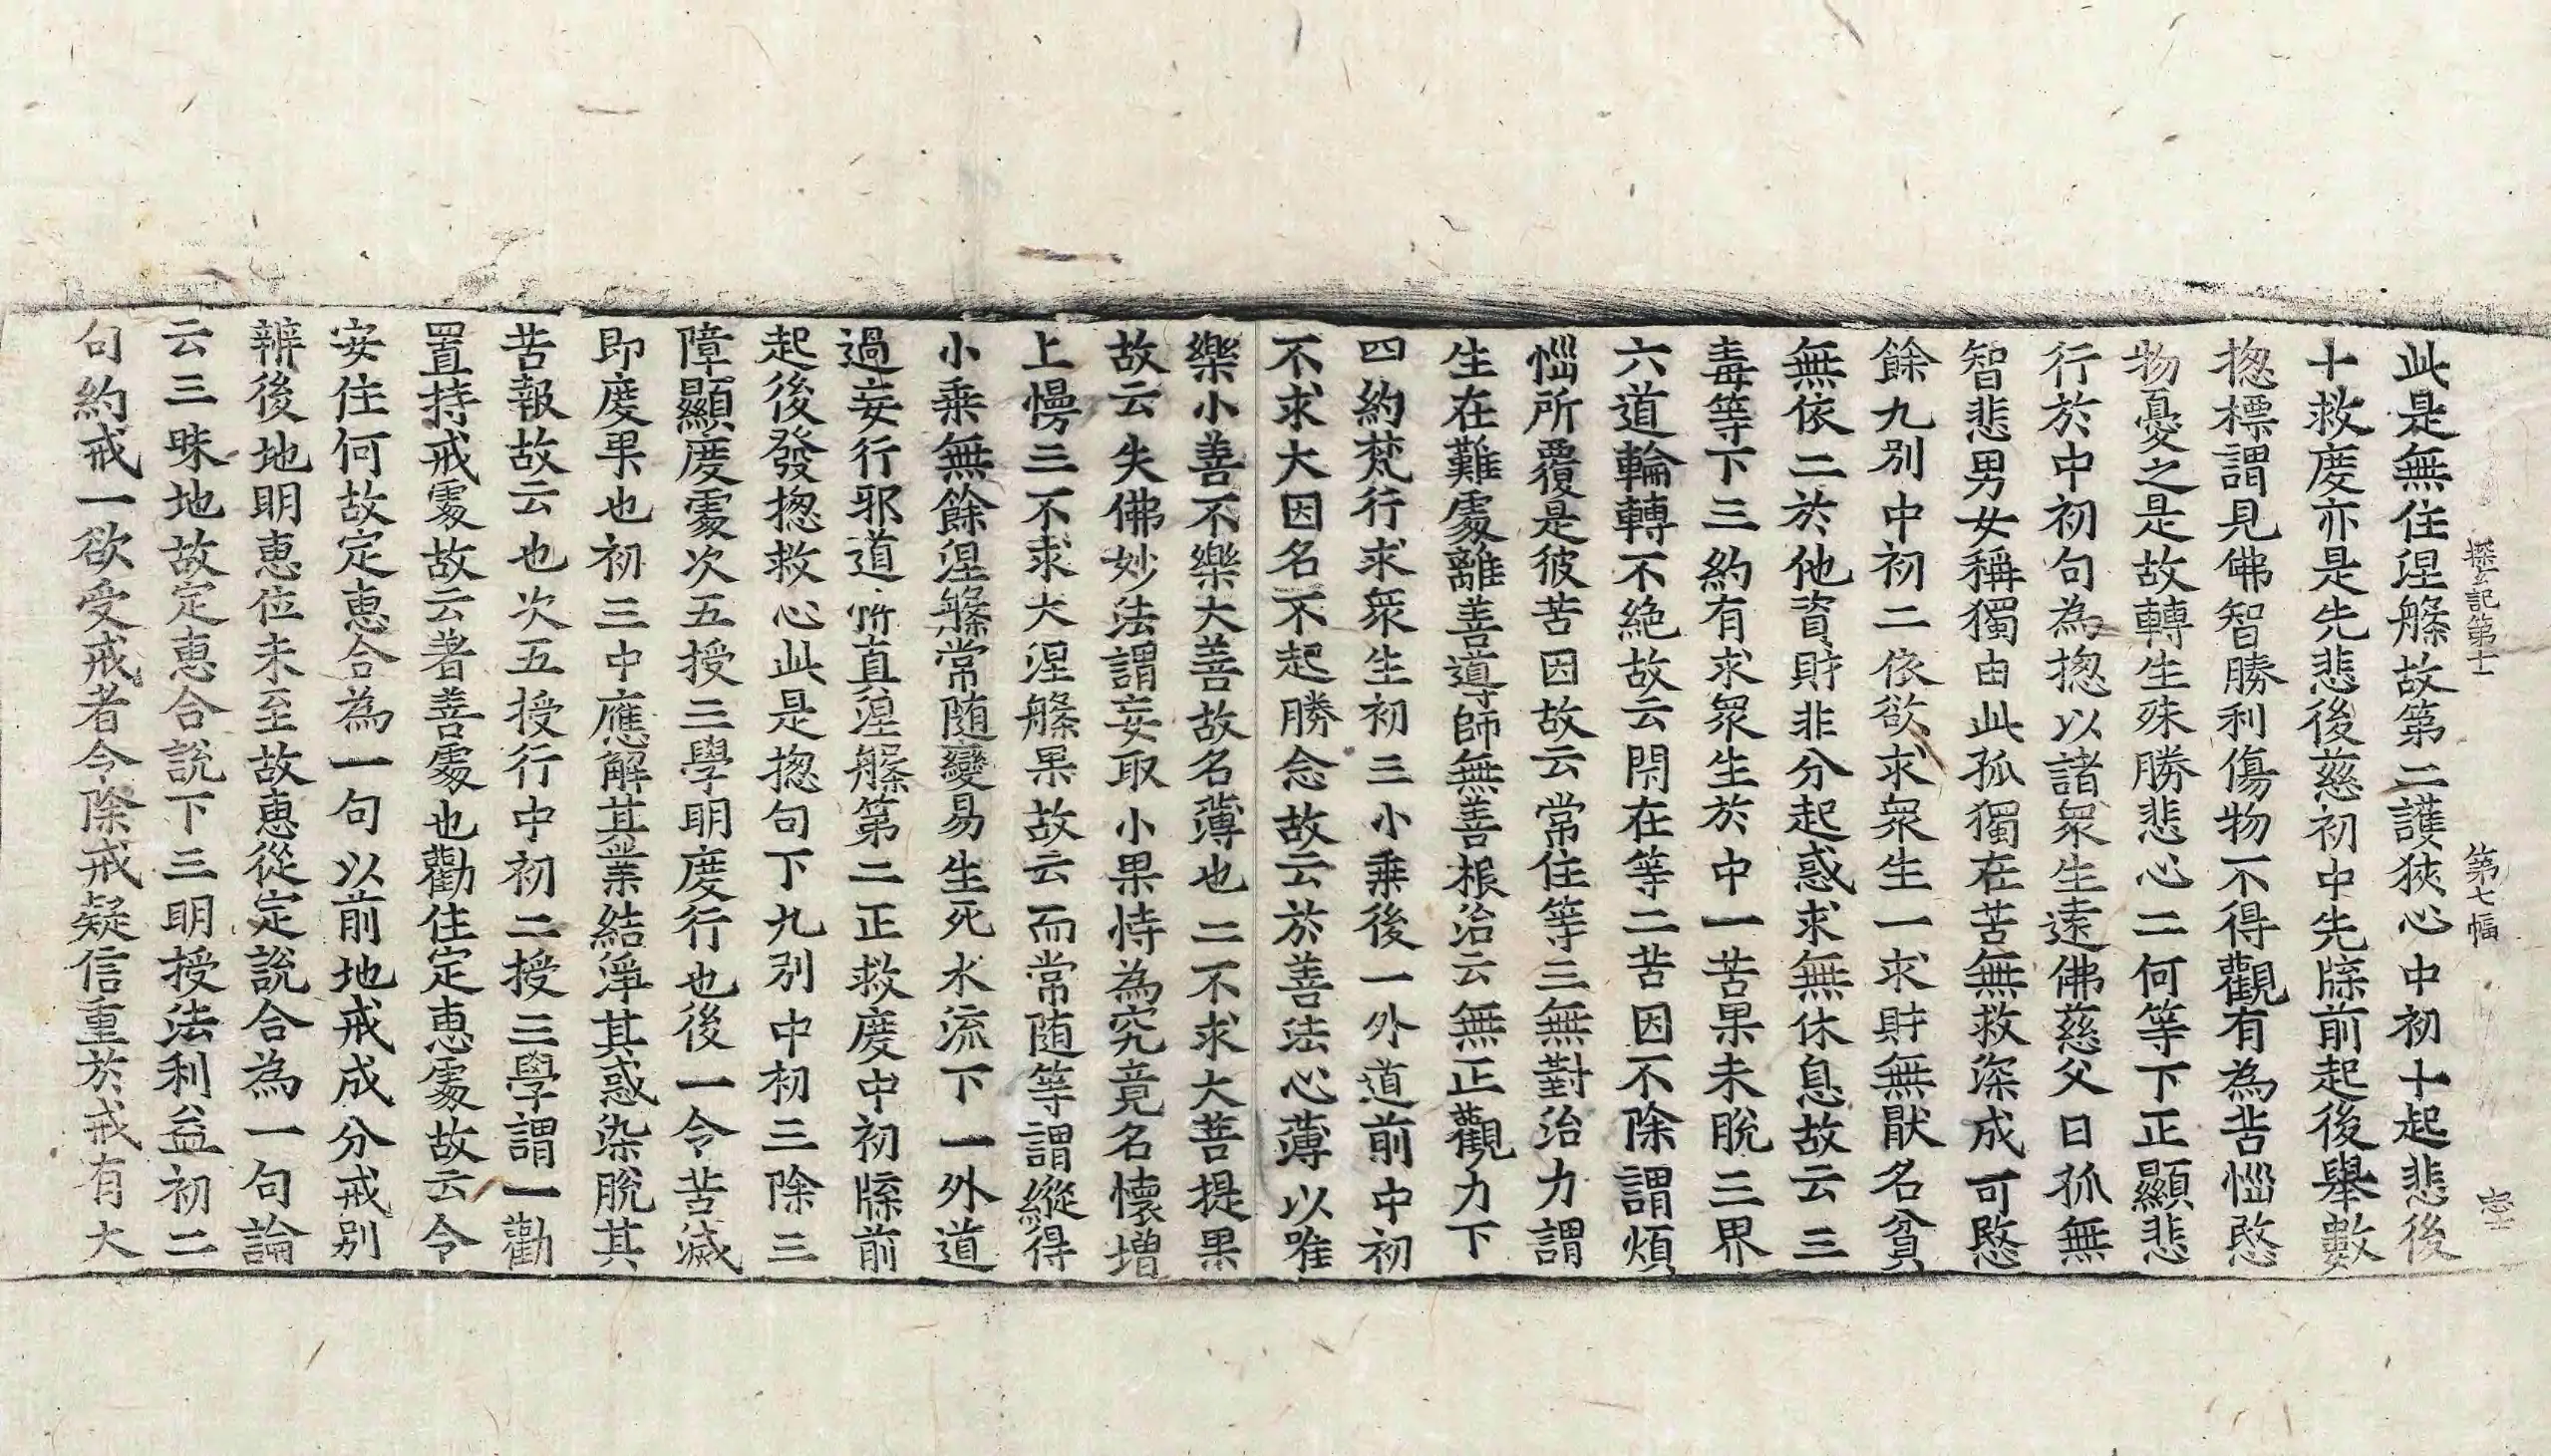 探玄記第十一 第七幅
此是無住涅槃故第二護狹心中初十起悲後
十救度亦是先悲後慈初中先牒前起後舉數
揔標謂見佛智勝利傷物不得觀有為苦惱愍
物憂之是故轉生殊勝悲心二何等下正顯悲
行於中初句為揔以諸衆生遠佛慈父曰孤無
智悲男女稱獨由此孤獨在苦無救深成可愍
餘九別中初二依欲求衆生一求財無猒名貧
無依二於他資財非分起惑求無休息故云三
毒等下三約有求衆生於中一苦果未脫三界
六道輪轉不絶故云閇在等二苦因不除謂煩
惱所覆是彼苦因故云常住等三無對治力謂
生在難處離善導師無善根治云無正觀力下
四約梵行求衆生初三小乘後一外道前中初
不求大因名不起勝念故云於善法心薄以唯
樂小善不樂大善故名薄也二不求大菩提果
故云失佛妙法謂妄取小果恃為究竟名懷增
上慢三不求大涅槃果故云而常随等謂縱得
小乘無餘涅槃常随變易生死水流下一外道
過妄行邪道所直涅槃第二正救度中初牒前
起後發揔救心此是揔句下九別中初三除三
障顯度處次五授三學明度行也後一令苦滅
即度果也初三中應解其業結淨其惑染脫其
苦報故云也次五授行中初二授三學謂一勸
置持戒處故云著善處也勸住定惠處故云令
安住何故定惠合為一句以前地戒成分戒別
辨後地明惠位未至故惠從定說合為一句論
云三昧地故定惠合說下三明授法利益初二
句約戒一欲受戒者令除戒疑信重於戒有大